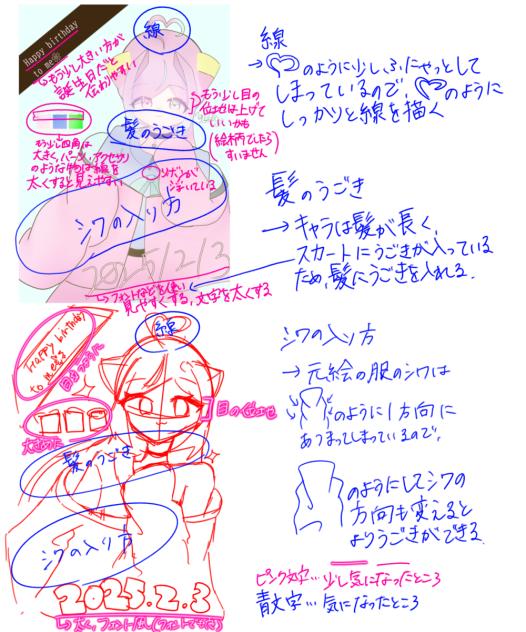 Happy birthday
to me
線
もう少し大きい方が
誕生日だと
伝わりやすい
もう少し目の
位は上げて
いいかも
(絵柄でしたら
すいません)
髪のうごき
もう少し四角は
大きく、パーツ、アクセサリ
のような物は線を
太くすると見えやすい
シワの入り方
2025/2/3
フォントなどを使い
見やすくする,文字を太くする
線
→のように少しふにゃっとして
しまっているので,のように
しっかりと線を描く
髪のうごき
→キャラは髪が長く,
スカートにうごきが入っている
ため,髪にうごきを入れる.
Happy birthday
to me
目立つように
線
大きめに
目の位
髪のうごき
シワの入り方
2025.2.3
シワの入り方
→元絵の服のシワは
のように1方向に
あつまってしまっているので,
のようにしてシワの
方向も変えると
よりうごきができる.
ピンク文字…少し気になったところ
青文字…気になったところ